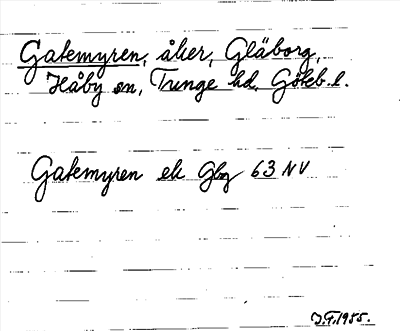 Gatemyren, åker, Gläborg,
Håby sn, Tunge hd, Göteb. l.
Gatemyren ek Gbg 63 NV
J.F. 1955.